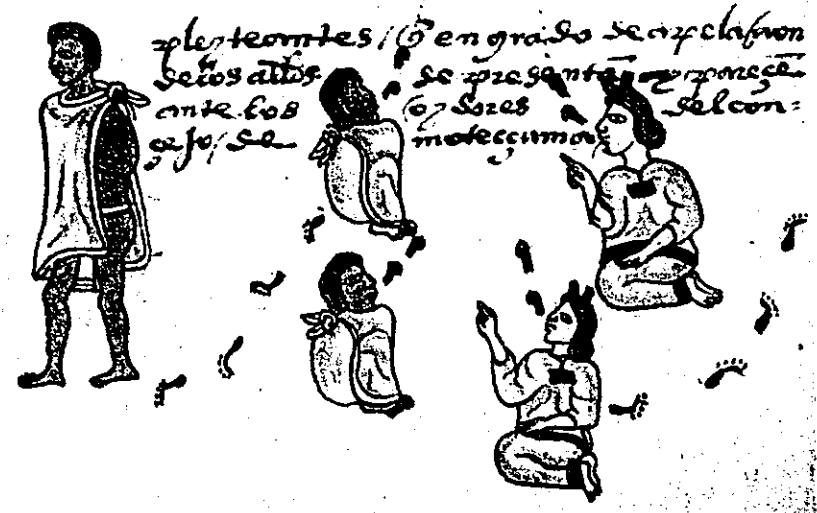 pleyteantes / q̃ en grado de apelaçion
de los allds se presentã y pareçẽ
ante los oydores del con=
çejo / de motecçuma